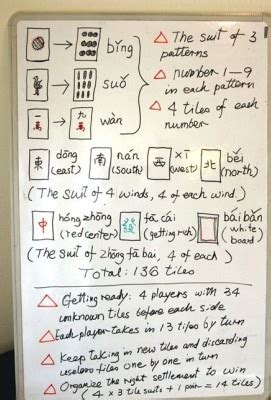 → bǐng
→ suǒ
一萬 → 九萬 wàn
△ The suit of 3 patterns
△ number 1—9 in each pattern
△ 4 tiles of each number
東 dōng (east) 南 nán (south) 西 xī (west) 北 běi (north)
(The suit of 4 winds, 4 of each wind.)
中 hóng zhōng (red center) 發 fā cái (getting rich) bái bǎn (white board)
(The suit of zhōng fā bai, 4 of each)
Total: 136 tiles
△ Getting ready: 4 players with 34 unknown tiles before each side
△ Each player takes in 13 tiles by turn
△ Keep taking in new tiles and discarding useless tiles one by one in turn
△ Organize the right settlement to win
(4 x 3 tile suits + 1 pair = 14 tiles)